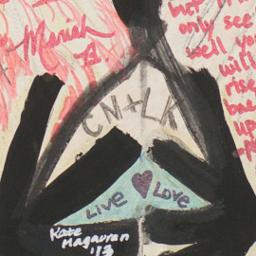 Mariah
A.
but
only see
well you
will
rise
bac
up
CN+LK
Live ♥ Love
Kate
Magauran
'13